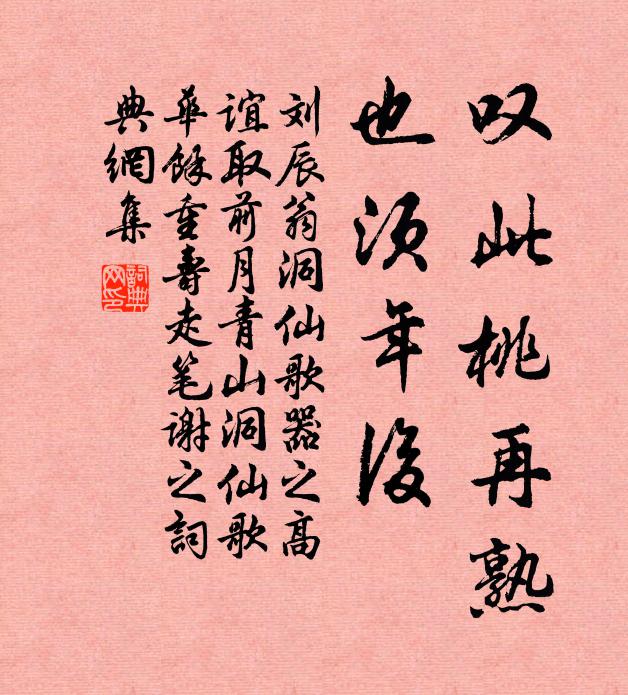 叹此桃再熟
也须年后
刘辰翁洞仙歌器之高
谊取前月青山洞仙歌
华馀重寿走笔谢之詞
典網集
詞典网印